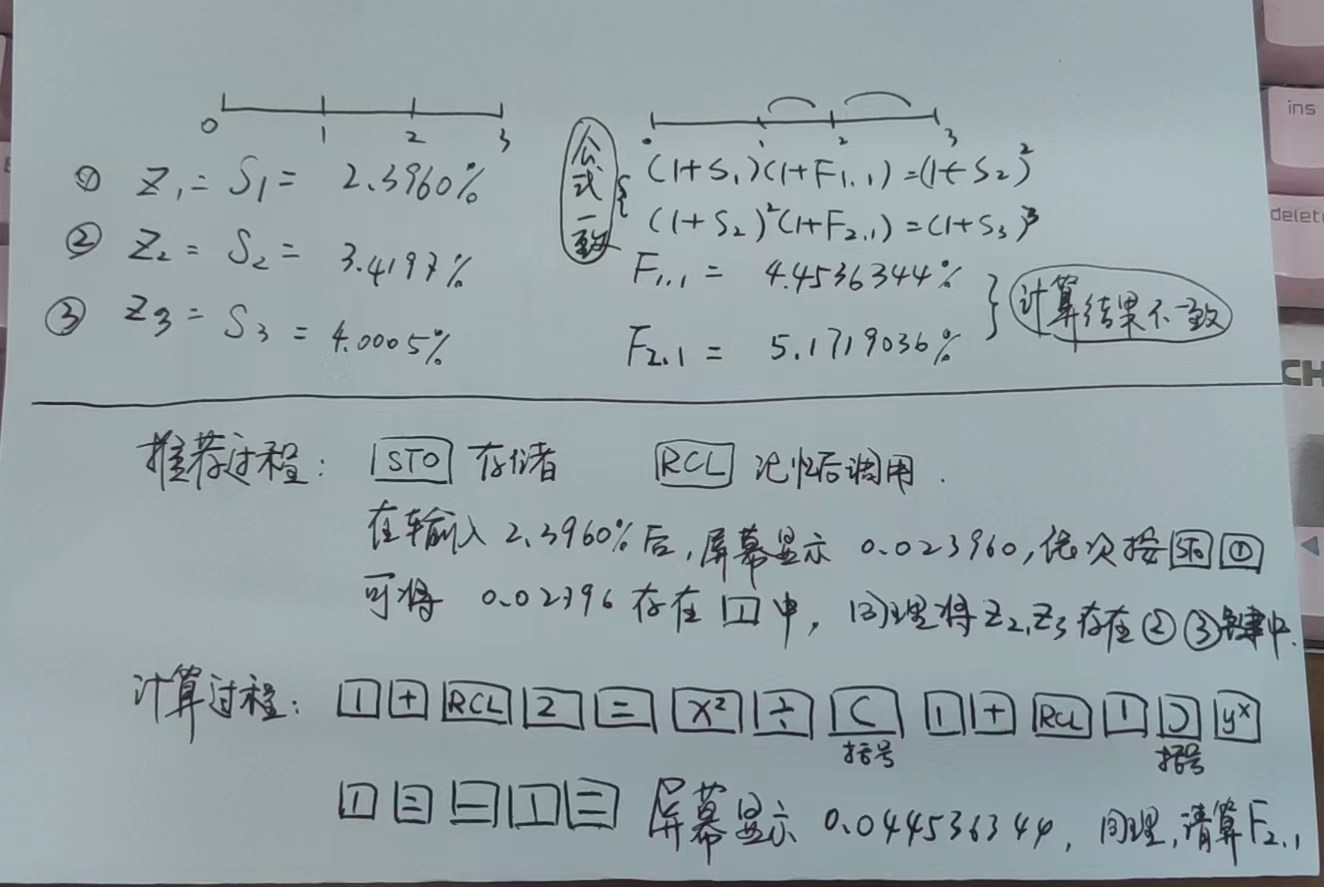 0 1 2 3
① Z₁ = S₁ = 2.3960%
② Z₂ = S₂ = 3.4197%
③ Z₃ = S₃ = 4.0005%
0 1 2 3
公式一致
(1+S₁)(1+F₁.₁)=(1+S₂)²
(1+S₂)²(1+F₂.₁)=(1+S₃)³
F₁.₁ = 4.4536344%
F₂.₁ = 5.1719036%
计算结果不一致
推荐过程: STO 存储者 RCL 记忆后调用.
在输入2.3960%后,屏幕显示 0.023960,依次按 STO ①
可将 0.02396 存在 1 中, 同理将Z₂,Z₃存在②③键中.
计算过程: 1 + RCL 2 = X² ÷ ( 1 + RCL 1 ) yˣ
括号 括号
1 = - 1 = 屏幕显示 0.044536344, 同理,请算F₂.₁
ins
delete
CH